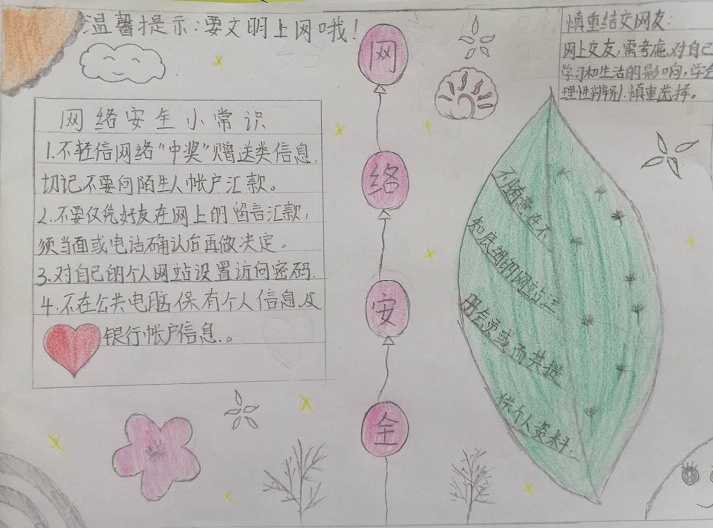 温馨提示:要文明上网哦!
慎重结交网友:
网上交友,需考虑,对自己
学习和生活的影响,学会
理性辨别.慎重选择。
网
络
安
全
网络安全小常识
1.不轻信网络“中奖”赠送类信息,
切记不要向陌生人帐户汇款。
2.不要仅凭好友在网上的留言汇款,
须当面或电话确认后再做决定。
3.对自己的个人网站设置访问密码.
4.不在公共电脑保有个人信息及
银行帐户信息.。
不随意在不
知底细的网站注
册会员或而其提
供个人资料...